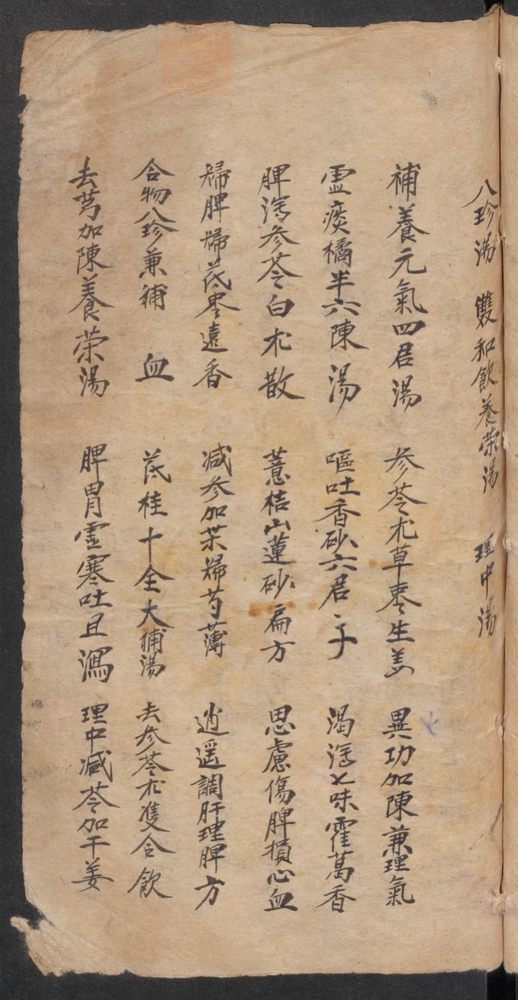 八珍湯 雙和飲養荣湯 理中湯
補養元氣四君湯 参苓朮草枣生姜 異功加陳兼理氣
虛痰橘半六陳湯 嘔吐香砂六君子 渴泻七味霍葛香
脾泻参苓白朮散 薏桔山蓮砂扁方 思慮傷脾損心血
歸脾歸芪枣遠香 減参加柴歸芍薄 逍遥調肝理脾方
合物八珍兼補 血 芪桂十全大補湯 去参苓朮隻合飲
去芎加陳養荣湯 脾胃虛寒吐且瀉 理中減苓加干姜